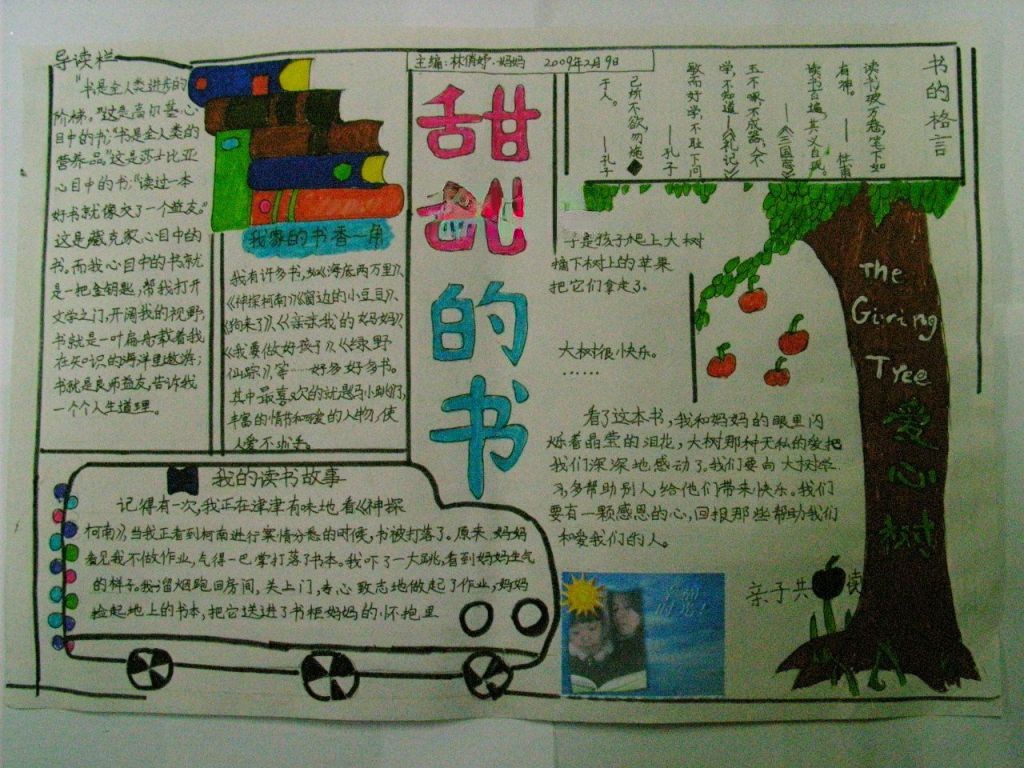 导读栏
"书是全人类进步的
阶梯。"这是高尔基心
目中的书;"书是全人类的
营养品"这是莎士比亚
心目中的书;"读过一本
好书就像交了一个益友。"
这是藏克家心目中的
书。而我心目中的书就
是一把金钥匙,帮我打开
文学之门,开阔我的视野;
书就是一叶扁舟载着我
在知识的海洋里遨游;
书就是良师益友,告诉我
一个个人生道理。
我家的书香一角
我有许多书,如《海底两万里》、
《神探柯南》《窗边的小豆豆》、
《狗来了》、《亲亲我的妈妈》
《我要做好孩子》、《绿野
仙踪》、等……好多好多书。
其中最喜欢的就是马小跳们,
丰富的情节和可爱的人物,使
人爱不
主编:林俏妤.妈妈 2009年2月9日
甜甜的书
书的格言
读书破万卷,笔下如
有神。 —— 杜甫
读书百遍,其义自见。
——《三国志》
玉不琢,不成器,人不
学,不知道——《礼记》
敏而好学,不耻下问
—— 孔子
己所不欲,勿施
于人。 —— 孔子
于是孩子爬上大树
摘下树上的苹果
把它们拿走了。
大树很快乐。
……
The
Giving
Tree
爱
心
树
看了这本书,我和妈妈的眼里闪
烁着晶莹的泪花,大树那种无私的爱把
我们深深地感动了。我们要向大树学
习,多帮助别人,给他们带来快乐。我们
要有一颗感恩的心,回报那些帮助我们
和爱我们的人。
亲子共读
我的读书故事
记得有一次,我正在津津有味地看《神探
柯南》,当我正看到柯南进行案情分悉的时候,书被打落了。原来,妈妈
看见我不做作业,气得一巴掌打落了书本。我吓了一大跳,看到妈妈生气
的样子。我溜烟跑回房间,关上门,专心致志地做起了作业,妈妈
捡起地上的书本,把它送进了书柜妈妈的怀抱里